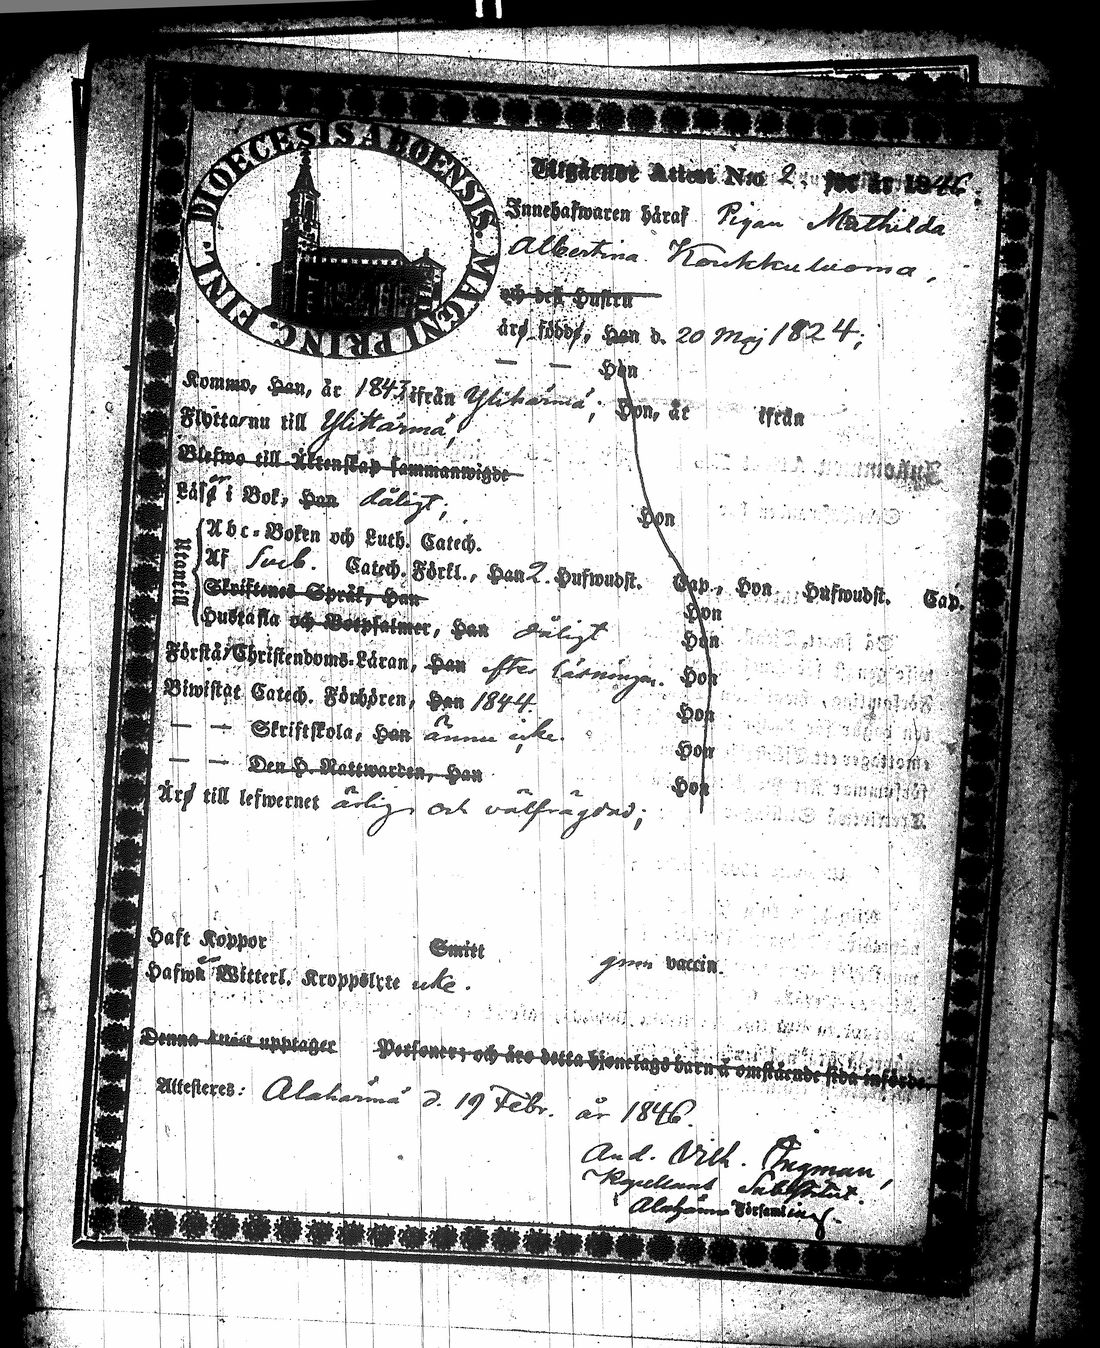 DIOECESIS ABOENSIS. MAGNI PRINC. FINL.
Utgående Attest N:o 2. för år 1846.
Innehafwaren häraf Pigan Mathilda
Albertina Koukkuluoma,
och dess Hustru
äro födde, Han d. 20 Maj 1824;
— — Hon
Kommo, Han, år 1843 ifrån Ylihärmä; Hon, år ifrån
Flytta nu till Ylihärmä;
Blefwo till Äktenskap sammanwigde
Läser i Bok, Han dåligt; Hon
Utantill
Abc-Boken och Luth. Catech.
Af Sveb. Catech. Förkl., Han 2. Hufwudst. Cap., Hon Hufwudst. Cap.
Skriftenes Språk, Han Hon
Hustafla och Botpsalmer, Han dåligt Hon
Förstå Christendoms-Läran, Han efter läsningen. Hon
Biwistat Catech. Förhören, Han 1844 Hon
— — Skriftskola, Han ännu icke. Hon
— — Den H. Nattwarden, Han Hon
Äro till lefwernet ärlig och välfrägdad;
Haft Koppor Smitt vaccin.
Hafwa Witterl. Kroppslyte icke.
Denna Attest upptager Personer; och äro detta hjonelags barn å omstående sida införde.
Attesteres: Alahärmä d. 19 Febr. år 1846.
And. Vilh. Ingman,
Kapellans Substitut.
Alahärmä Församling.